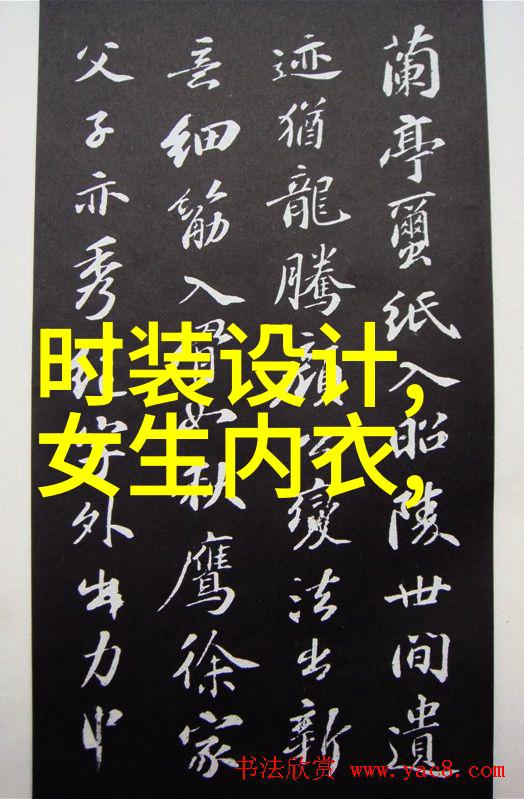 蘭亭蠒紙入昭陵世間遺
迹猶龍騰顔公變法出新
意細筋入骨如秋鷹徐家
父子亦秀絶字外出力中
时装设计,
女生内衣,
书法欣赏 www.yac8.com